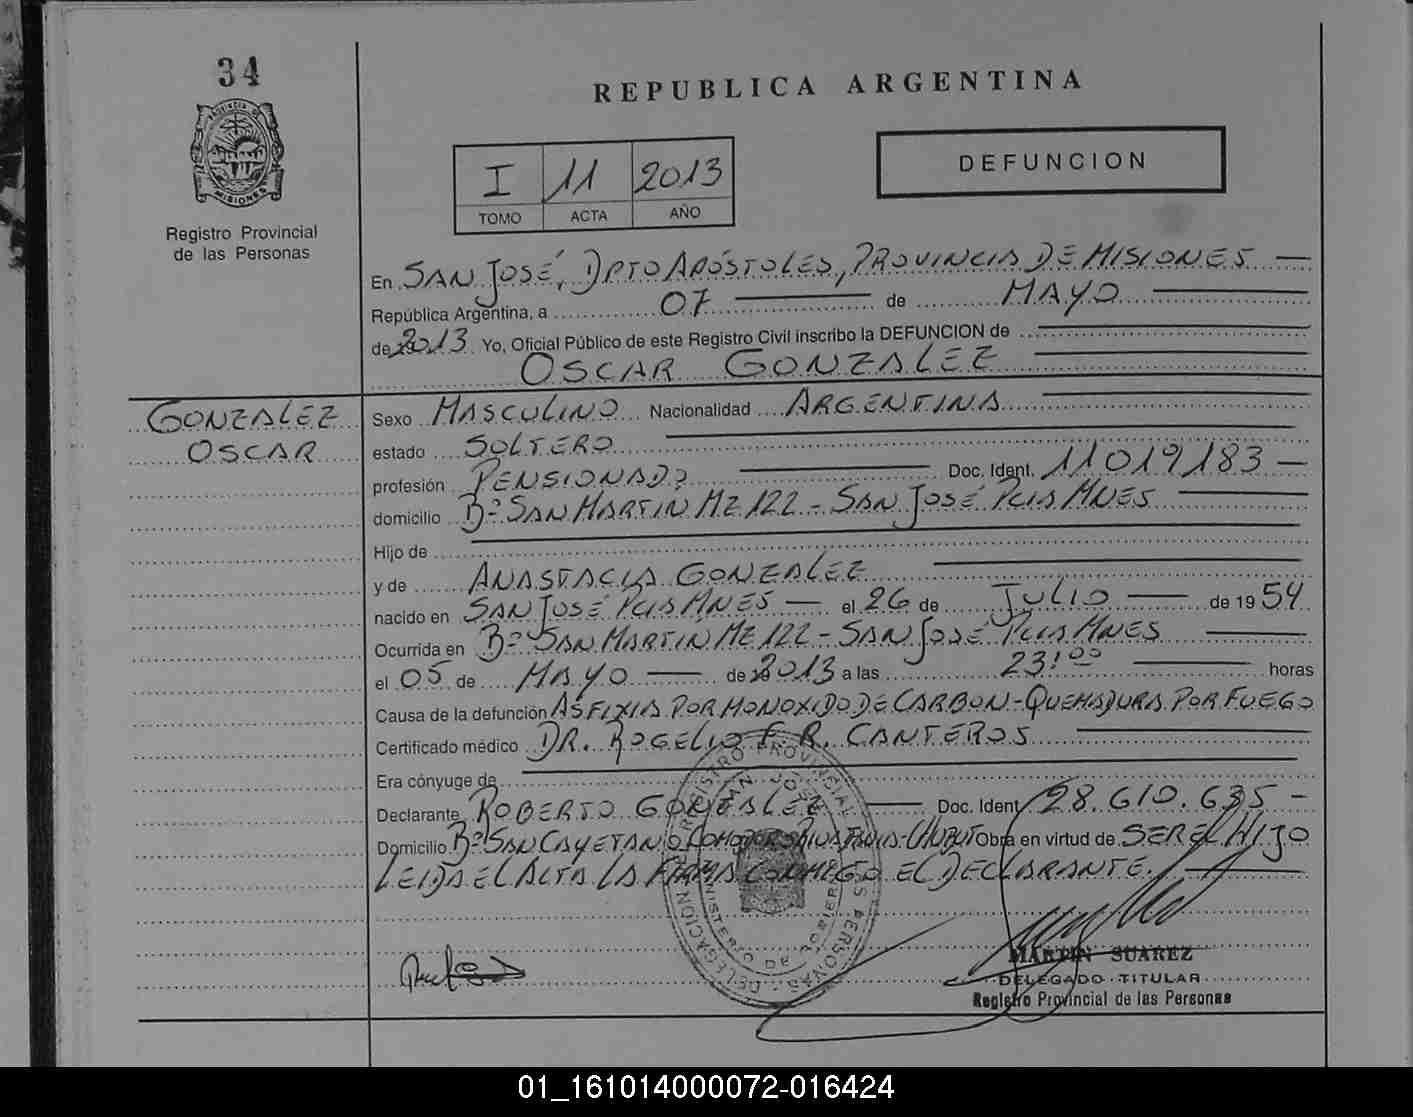 34
PROVINCIA DE
MISIONES
Registro Provincial
de las Personas
REPUBLICA ARGENTINA
I 11 2013
TOMO ACTA AÑO
DEFUNCION
En SAN JOSÉ, DPTO APÓSTOLES, PROVINCIA DE MISIONES —
República Argentina, a 07 — de MAYO —
de 2013 Yo, Oficial Público de este Registro Civil inscribo la DEFUNCION de —
OSCAR GONZALEZ —
GONZALEZ
OSCAR
Sexo MASCULINO Nacionalidad ARGENTINA —
estado SOLTERO —
profesión PENSIONADO — Doc. Ident. 11019183 —
domicilio Bº SAN MARTIN MZ 122 - SAN JOSÉ PCIA MNES —
Hijo de —
y de ANASTACIA GONZALEZ —
nacido en SAN JOSÉ PCIA MNES — el 26 de JULIO — de 19 54
Ocurrida en Bº SAN MARTIN MZ 122 - SAN JOSÉ PCIA MNES —
el 05 de MAYO — de 2013 a las 23:00 — horas
Causa de la defunción ASFIXIA POR MONOXIDO DE CARBON - QUEMADURA POR FUEGO
Certificado médico DR. ROGELIO F. R. CANTEROS —
Era cónyuge de —
Declarante ROBERTO GONZALEZ — Doc. Ident. 28.610.635 —
Domicilio Bº SAN CAYETANO COMODORO RIVADAVIA - CHUBUT Obra en virtud de SER EL HIJO
LEIDA EL ACTA LA FIRMA CONMIGO EL DECLARANTE. —
REGISTRO PROVINCIAL DE LAS PERSONAS. DELEGACION
SAN JOSE
MINISTERIO DE GOBIERNO
MARTIN SUAREZ
DELEGADO TITULAR
Registro Provincial de las Personas
01_161014000072-016424